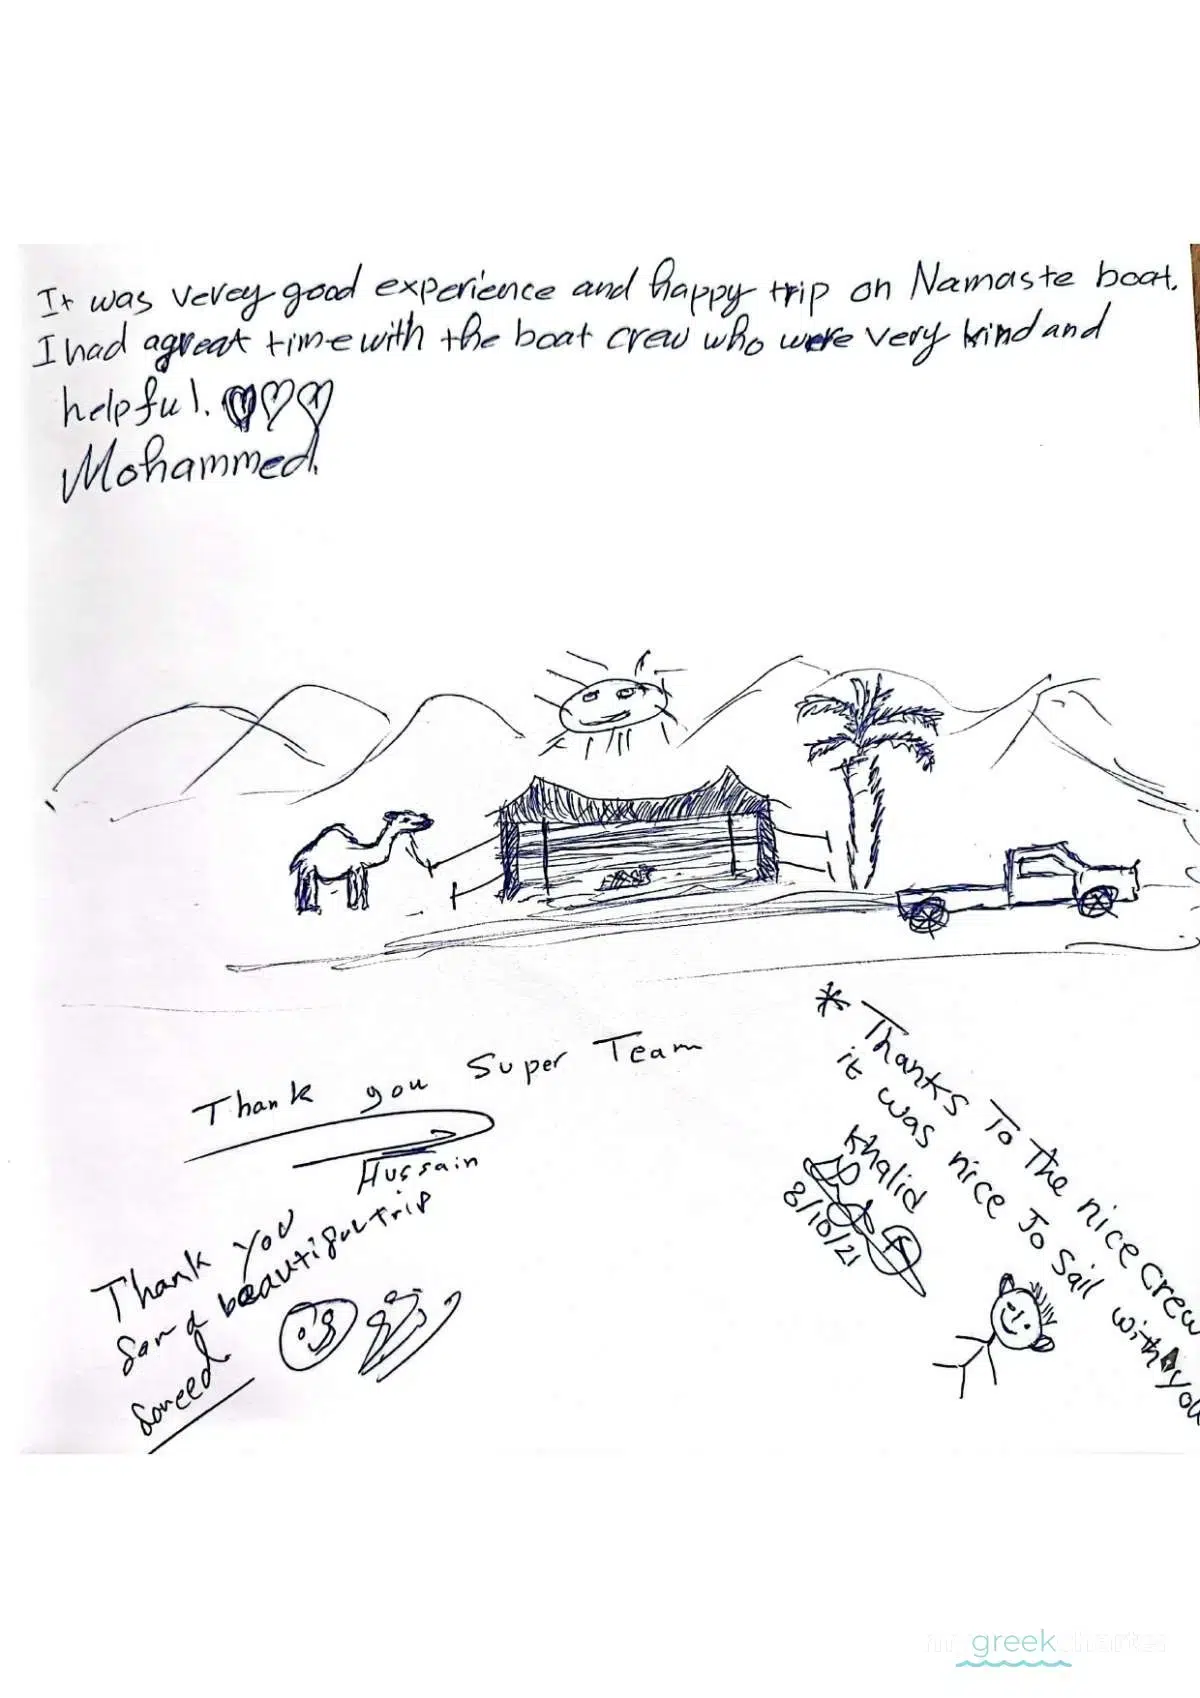 It was verey good experience and happy trip on Namaste boat.
I had a great time with the boat crew who were very kind and
helpful.
Mohammed.
Thank you Super Team
Hussain
Thank you
for a beautiful trip
* Thanks To The nice crew
it was nice To sail with you
Khalid
8/10/21
greek